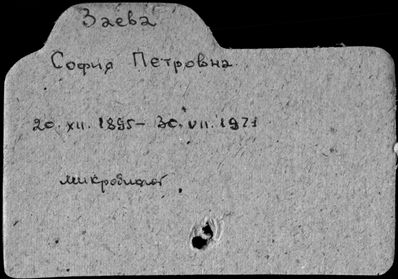 Заева
София Петровна
20. XII. 1895 – 30. VII. 1971
микробиолог